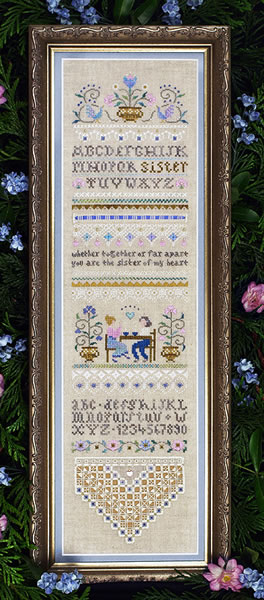 ABCDEFGHIJK
LMNOPQR SISTER
TUVWXYZ
whether together or far apart
you are the sister of my heart
abc·defghijkl
mnopqrstuvw
xyz·1234567890